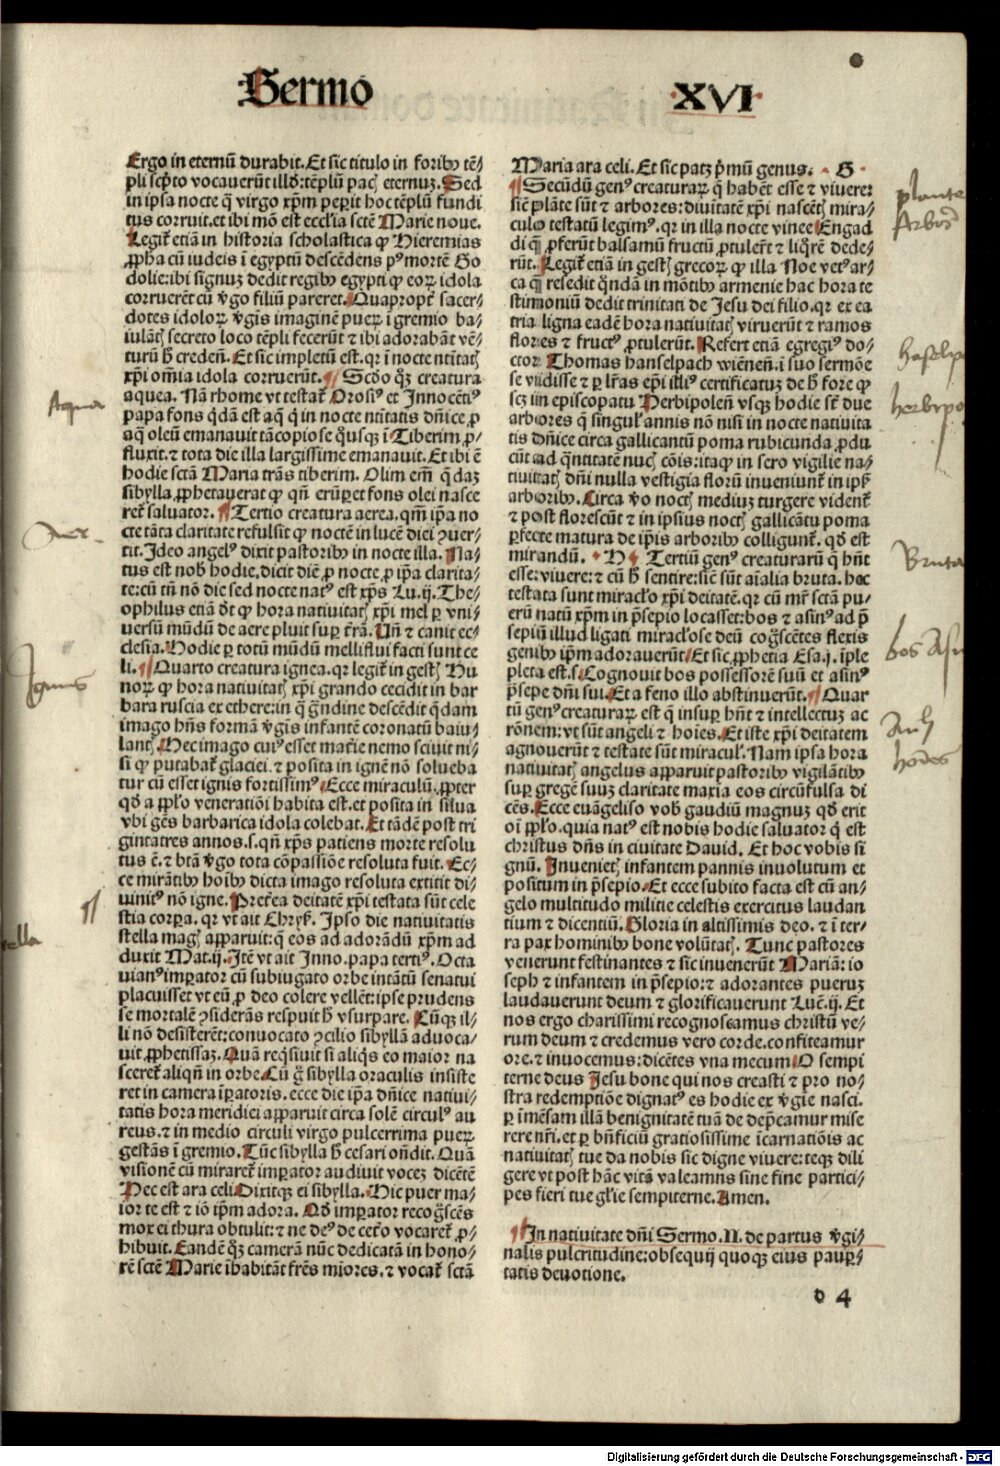 Sermo
XVI
Ergo in eternū durabit. Et sic titulo in foribꝰ tē⸗
pli scp̄to vocauerūt illd̄: tēplū pacꝭ eternuꝫ. Sed
in ipsa nocte q̄ virgo xp̄m peꝑit hoc tēplū fundi
tus corruit. et ibi mō est eccl̄ia sctē Marie noue.
Legit̄ etiā in historia scholastica ꝙ Hieremias
ꝓpha cū iudeis ī egyptū descēdens pꝰ mortē Go
dolie: ibi signuꝫ dedit regibꝰ egypti ꝙ eoꝝ idola
corruerēt cū v̄go filiū pareret. Quaproptᷣ sacer⸗
dotes idoloꝝ v̄gīs imaginē pueꝝ ī gremio ba⸗
iulātꝭ secreto loco tēpli fecerūt ⁊ ibi adorabāt vē⸗
turū h̄ credeñ. Et sic impletū est. qꝛ ī nocte nt̄itatꝭ
xp̄i om̄ia idola corruerūt. ¶ Scd̄o qꝫ creatura
aquea. Nā rhome vt testat̄ Orosiꝰ et Innocētiꝰ
papa fons qͥdā est aq̄ q̄ in nocte nt̄itatis dn̄ice ꝓ
aq̄ oleū emanauit tā copiose qͥusqꝫ ī Tiberim ꝓ⸗
fluxit. ⁊ tota die illa largissime emanauit. Et ibi ē
hodie sctā Maria trās tiberim. Olim em̄ q̄daꝫ
sibylla ꝓphetauerat ꝙ qn̄ erūꝑet fons olei nasce
ret̄ saluator. ¶ Tertio creatura aerea. qm̄ ip̄a no
cte tāta claritate refulsit ꝙ noctē in lucē diei ꝯuer⸗
tit. Ideo angelꝰ dixit pastoribꝰ in nocte illa. Na⸗
tus est nob̄ hodie. dicit diē ꝓ nocte ꝓ ip̄a clarita⸗
te: cū tn̄ nō die sed nocte natꝰ est xp̄s Lu. ij. The⸗
ophilus etiā dt̄ ꝙ hora natiuitatꝭ xp̄i mel ꝑ vni⸗
uersū mūdū de aere pluit suꝑ tr̄ā. Vn̄ ⁊ canit ec⸗
clesia. Hodie ꝑ totū mūdū melliflui facti sunt ce
li. ¶ Quarto creatura ignea. qꝛ legit̄ in gestꝭ Hu
noꝝ ꝙ hora natiuitatꝭ xp̄i grando cecidit in bar
bara ruscia ex ethere: in q̄ grādine descēdit q̄dam
imago hn̄s formā v̄gīs infantē coronatū baiu⸗
lantꝭ. Hec imago cuiꝰ esset mat̄ie nemo sciuit ni⸗
si ꝙ putabat̄ glaciei. ⁊ posita in ignē nō solueba
tur cū esset ignis fortissimꝰ. Ecce miraculū. ꝓpter
qd̄ a ppl̄o veneratiōi habita est. et posita in silua
vbi gēs barbarica idola colebat. Et tādē post tri
ginta tres annos. s. qn̄ xp̄s patiens morte resolu
tus ē. ⁊ btā v̄go tota cōpassiōe resoluta fuit. Ec⸗
ce mirātibꝰ hoībꝰ dicta imago resoluta extitit di⸗
uinitꝰ nō igne. Pretᷣea deitatē xp̄i testata sūt cele
stia corꝑa. qꝛ vt ait Chryß. Ipso die natiuitatis
stella magꝭ apparuit: q̄ eos ad adorādū xp̄m ad
duxit Mat. ij. Itē vt ait Inno. papa tertiꝰ. Octa
uianꝰ imꝑator cū subiugato orbe intātū senatui
placuisset vt eū ꝓ deo colere vellēt: ipse prudens
se mortalē ꝯsiderās respuit h̄ vsurpare. Cūqꝫ il⸗
li nō desisterēt: conuocato ꝯcilio sibyllā aduoca⸗
uit ꝓphetissaꝫ. Quā reqͥsiuit si aliqͥs eo maior na
sceret̄ aliqn̄ in orbe. Cū g̊ sibylla oraculis insiste
ret in camera īꝑatoris. ecce die ip̄a dn̄ice natiui⸗
tatis hora meridiei apparuit circa solē circulꝰ au
reus. ⁊ in medio circuli virgo pulcerrima pueꝝ
gestās ī gremio. Tūc sibylla h̄ cesari on̄dit. Quā
visionē cū miraret̄ imꝑator audiuit voceꝫ dicētē
Hec est ara celi. Dixitqꝫ ei sibylla. Hic puer ma⸗
ior te est ⁊ iō ip̄m adora. Qd̄ imꝑator recog̊scēs
mox ei thura obtulit: ⁊ ne deꝰ de cetᷣo vocaret̄ ꝓ⸗
hibuit. Eandē qꝫ camerā nūc dedicatā in hono⸗
rē sctē Marie īhabitāt fr̄es mīores. ⁊ vocat̄ sctā
Maria ara celi. Et sic patꝫ pͥmū genus. · G ·
¶ Secūdū genꝰ creaturaꝝ q̄ habēt esse ⁊ viuere:
sic̄ plāte sūt ⁊ arbores: diuitatē xp̄i nascētꝭ mira⸗
culo testatū legimꝰ. qꝛ in illa nocte vinee Engad
di q̄ ꝓferūt balsamū fructū ꝓtuler̄t ⁊ liqͦrē dede⸗
rūt. Legit̄ etiā in gestꝭ grecoꝝ ꝙ illa Noe vetꝰ ar⸗
ca q̄ resedit qͦndā in mōtibꝰ armenie hac hora te
stimoniū dedit trinitati de Jesu dei filio. qꝛ ex ea
tria ligna eadē hora natiuitatꝭ viruerūt ⁊ ramos
flores ⁊ fructꝰ ꝓtulerūt. Refert etiā egregiꝰ do⸗
ctor Thomas hanselpach wiēneñ. ī suo sermōe
se vidisse ⁊ ꝑ lr̄as ep̄i illiꝰ certificatuꝫ de h̄ fore ꝙ
scꝫ im episcopatu Herbipoleñ vsqꝫ hodie st̄ due
arbores q̄ singul̄ annis nō nisi in nocte natiuita
tis dn̄ice circa gallicantū poma rubicunda ꝓdu
cūt ad q̄ntitatē nucꝭ cōis: itaqꝫ in sero vigilie na⸗
tiuitatꝭ dn̄i nulla vestigia florū inueniunt̄ in ipß
arboribꝰ. Circa v̊o noctꝭ mediuꝫ turgere vident̄
⁊ post florescūt ⁊ in ipsius noctꝭ gallicātu poma
ꝑfecte matura de ip̄is arboribꝰ colligunt̄. qd̄ est
mirandū. · H · Tertiū genꝰ creaturarū q̄ hn̄t
esse: viuere: ⁊ cū h̄ sentire: sic̄ sūt aīalia bruta. hoc
testata sunt miracl̄o xp̄i deitatē. qꝛ cū mr̄ sctā pu⸗
erū natū xp̄m in p̄sepio locasset: bos ⁊ asinꝰ ad p̄
sepiū illud ligati miracl̄ose deū cog̊scētes flexis
genibꝰ ip̄m adorauerūt. Et sic ꝓphetia Esa. j. īple
pleta est. s. Cognouit bos possessorē suū et asinꝰ
p̄sepe dn̄i sui. Et a feno illo abstinuerūt. ¶ Quar
tū genꝰ creaturaꝝ est q̄ insuꝑ hn̄t ⁊ intellectuꝫ ac
rōnem: vt sūt angeli ⁊ hoīes. Et iste xp̄i deitatem
agnouerūt ⁊ testate sūt miracul̄. Nam ipsa hora
natiuitatꝭ angelus apparuit pastoribꝰ vigilātibꝰ
suꝑ gregē suuꝫ claritate maxīa eos circūfulsa di
cēs. Ecce euāgeliso vob̄ gaudiū magnuꝫ qd̄ erit
oī ppl̄o. quia natꝰ est nobis hodie saluator q̄ est
christus dn̄s in ciuitate Dauid. Et hoc vobis si
gnū. Inuenietꝭ infantem pannis inuolutum et
positum in p̄sepio. Et ecce subito facta est cū an⸗
gelo multitudo militie celestis exercitus laudan
tium ⁊ dicentiū. Gloria in altissimis deo. ⁊ ī ter⸗
ra pax hominibꝰ bone volūtatꝭ. Tunc pastores
venerunt festinantes ⁊ sic inuenerūt Mariā: io
seph ⁊ infantem in p̄sepio: ⁊ adorantes pueruꝫ
laudauerunt deum ⁊ glorificauerunt Luc̄. ij. Et
nos ergo charissimi recognoscamus christū ve⸗
rum deum ⁊ credemus vero corde. confiteamur
ore. ⁊ inuocemus: dicētes vna mecum. O sempi
terne deus Jesu bone qui nos creasti ⁊ pro no⸗
stra redemptiōe dignatꝰ es hodie ex v̄gīe nasci.
ꝑ īmēsam illā benignitatē tuā de dep̄camur mise
rere nr̄i. et ꝑ bn̄ficiū gratiosissime īcarnatiōis ac
natiuitatꝭ tue da nobis sic digne viuere: teqꝫ dili
gere vt post hāc vitā valeamus sine fine partici⸗
pes fieri tue gl̄ie sempiterne. Amen.
¶ In natiuitate dn̄i Sermo. II. de partus v̄gi⸗
nalis pulcritudine: obsequij quoqꝫ eius pauꝑ⸗
tatis deuotione.
d 4
plante
Arbores
herbipo
Bruta
bos Asi
Aqua
Aer
Ignis
Digitalisierung gefördert durch die Deutsche Forschungsgemeinschaft - DFG